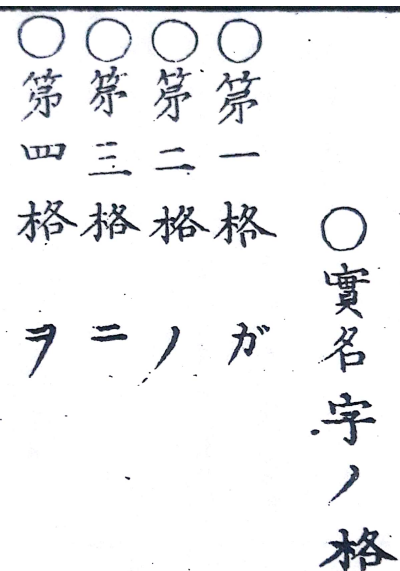 ○實名字ノ格
○第一格 ガ
○第二格 ノ
○第三格 ニ
○第四格 ヲ